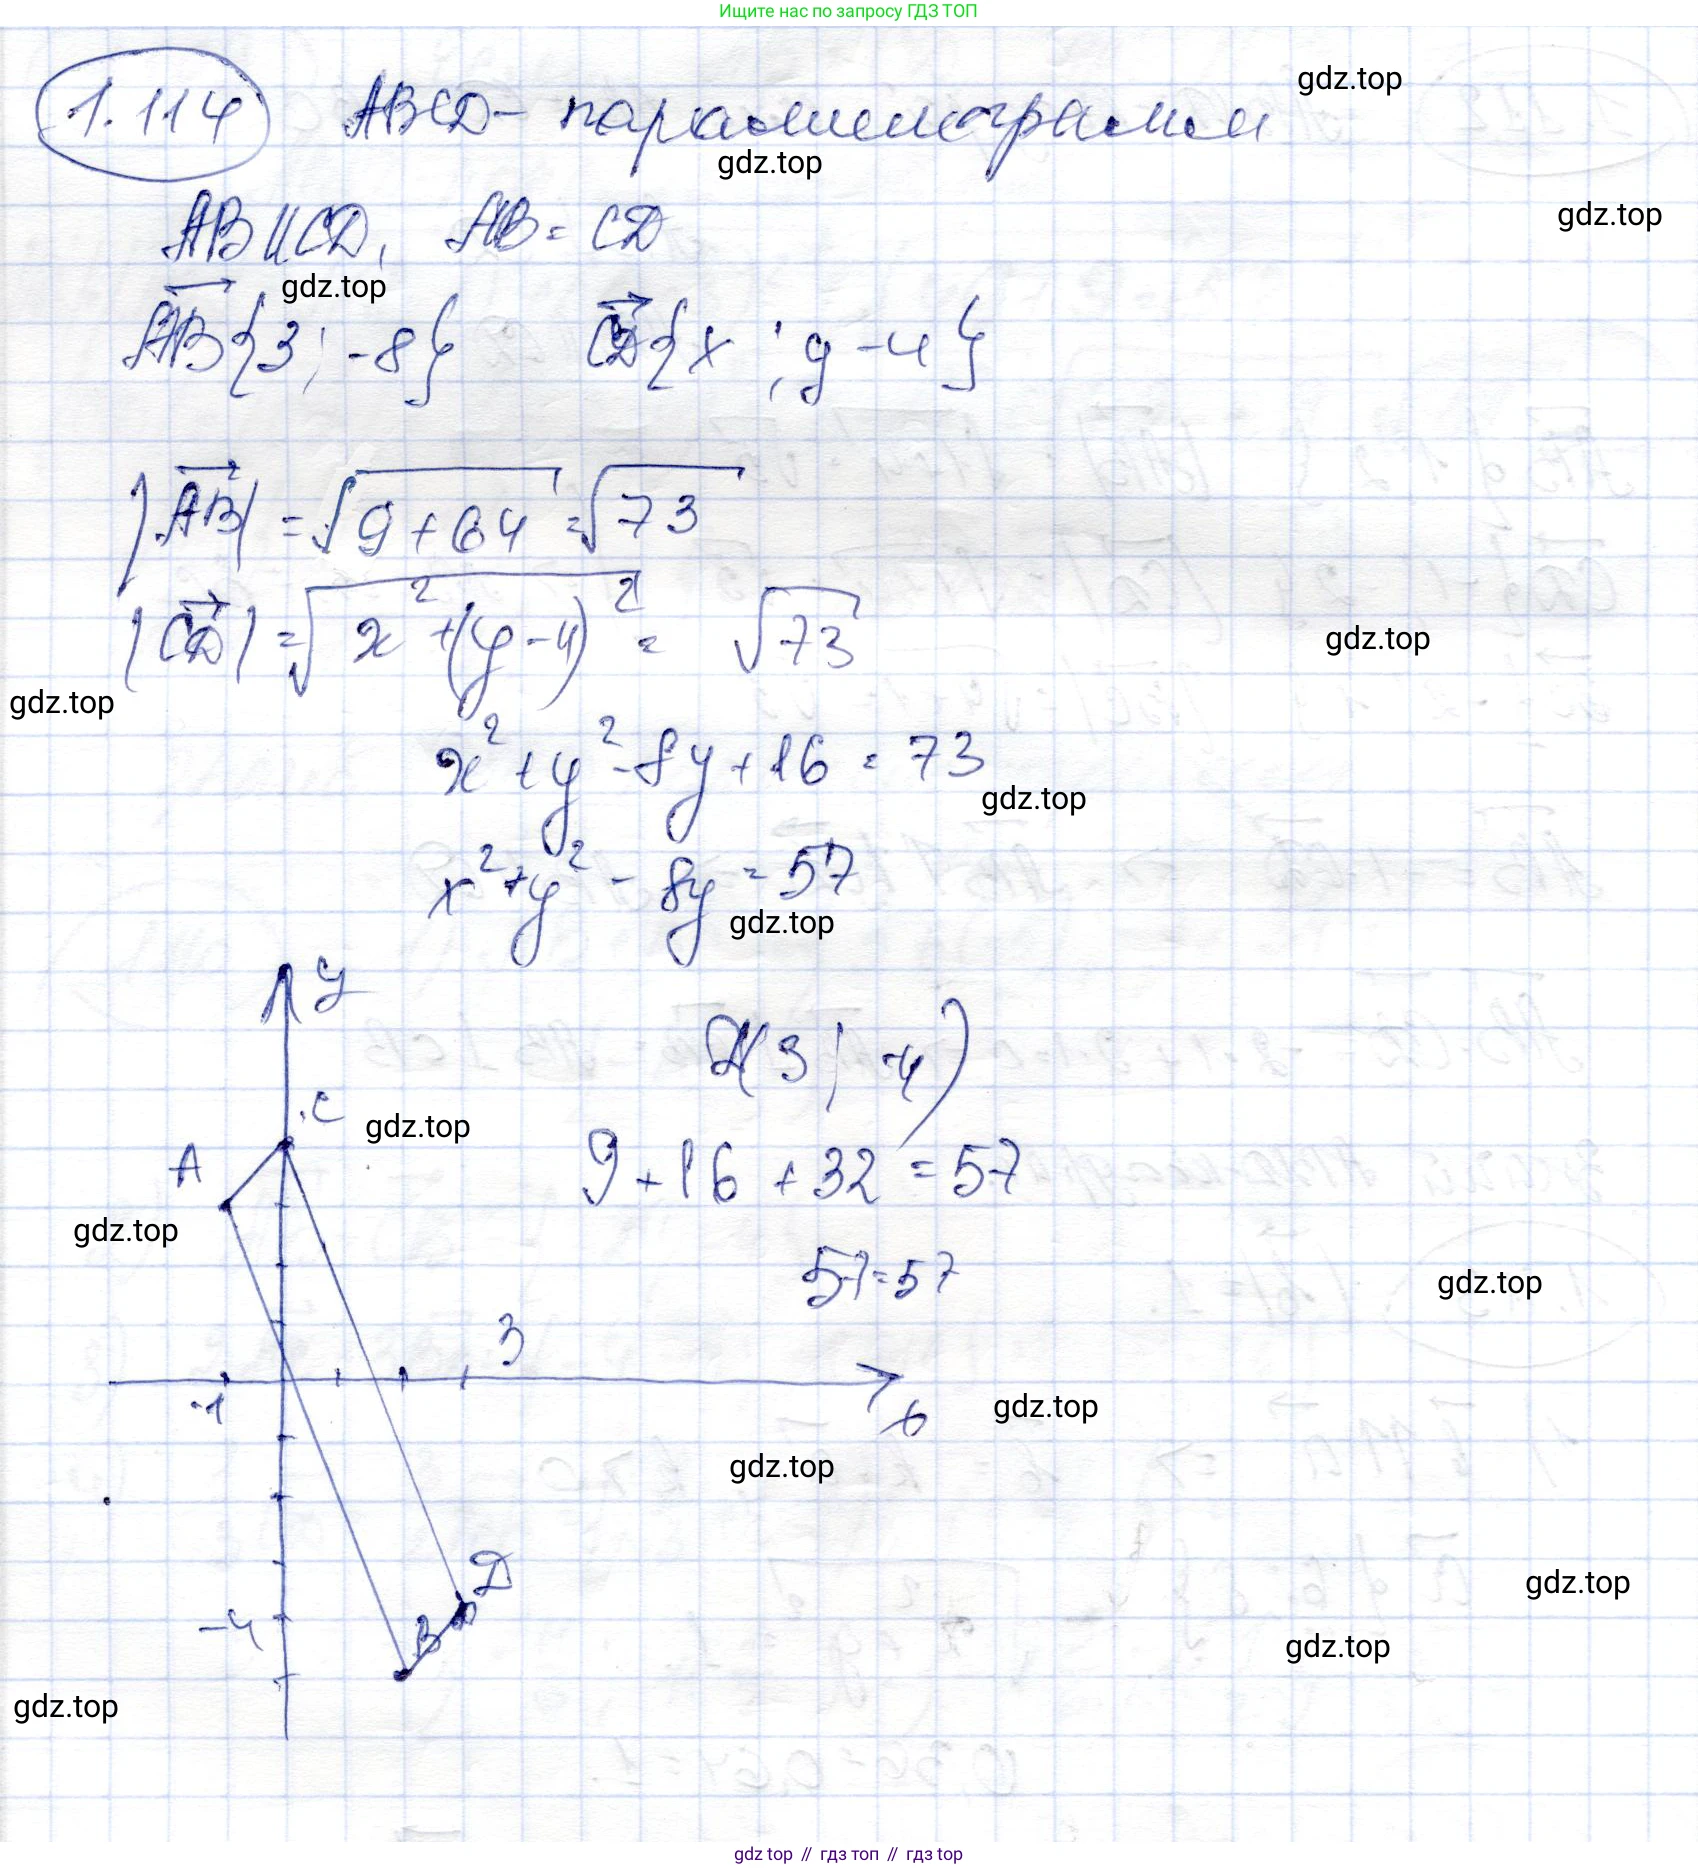 Ищите нас по запросу ГДЗ ТОП
gdz.top
1.114 ABCD - параллелограмм
gdz.top
gdz.top
AB || CD, AB = CD
gdz.top
AB{3; -8} CD{x; y-4}
|AB| = √9+64 = √73
|CD| = √x²+(y-4)² = √73
gdz.top
gdz.top
x²+y²-8y+16=73
gdz.top
x²+y²-8y=57
gdz.top
y
D(3; -4)
C
gdz.top
A
9+16+32=57
gdz.top
57=57
gdz.top
3
-1
x
gdz.top
gdz.top
D
gdz.top
-4
B
gdz.top
gdz.top
gdz top // гдз топ // гдз top